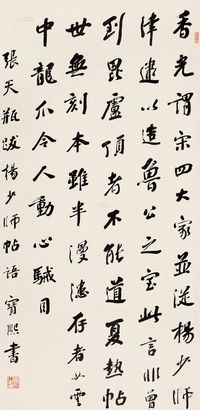 香光謂宋四大家並從楊少師
津逮以造魯公之室此言非曾
到毘盧頂者不能道夏熱帖
世無刻本雖半漫漶存者如雲
中龍爪令人動心駴目
張天瓶跋楊少師帖語 寶熙書